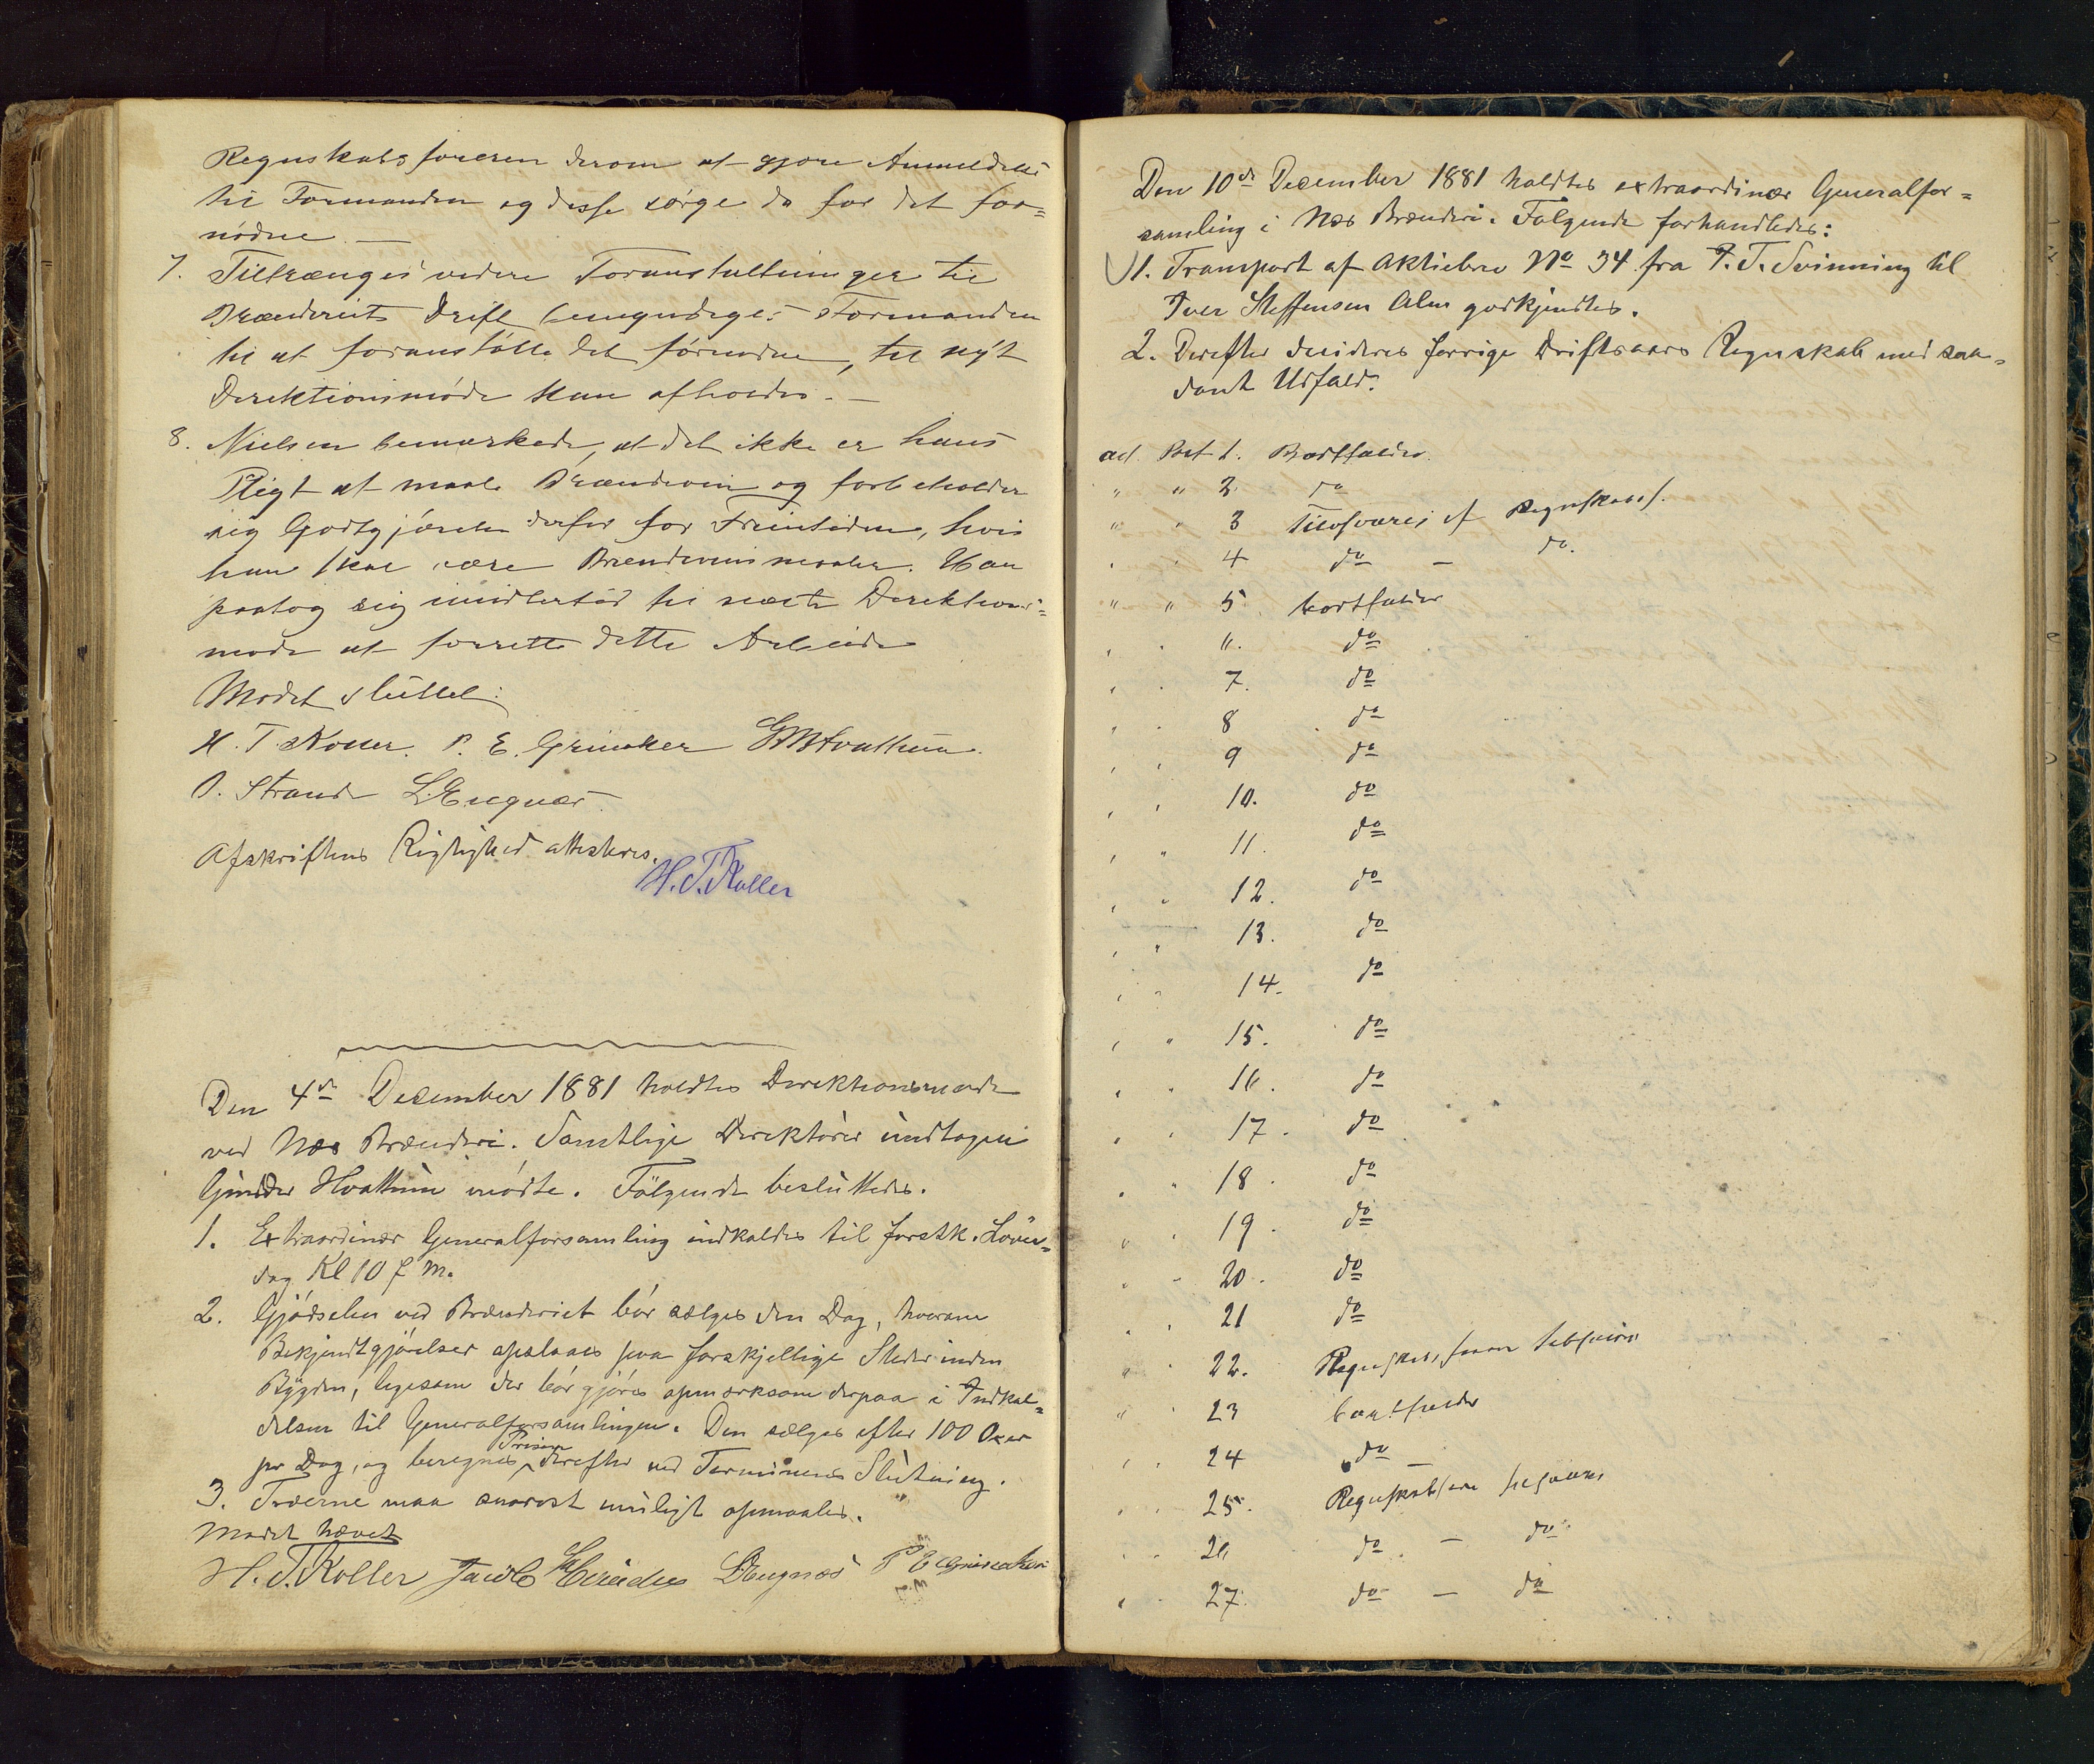 Regnskabsføreren derom at gjøre Anmeldelse
til Formanden og disse sørge da for det for=
nødne. —
7. Tiltrænges videre Foranstaltninger til
Brænderiets Drift bemyndiges Formanden
til at foranstalte det fornødne, til nyt
Direktionsmøde kan afholdes. —
8. Nielsen bemærkede, at det ikke er hans
Pligt at maale Brændevin og forbeholder
sig Godtgjørelse derfor for Fremtiden, hvis
han skal være Brændevinsmaaler. Han
paatog sig imidlertid til næste Direktions=
møde at forrette dette Arbeide
Mødet sluttet.
H. T. Koller. P. E. Grinaker Hvattum.
P. Strande L. Engnæs
Afskriftens Rigtighed attesteres.
H. T. Koller
Den 4de December 1881 holdtes Direktionsmøde
ved Næs Brænderi. Samtlige Direktører undtagen
Gunder Hvattum mødte. Følgende besluttedes.
1. Extraordinær Generalforsamling indkaldes til førstk. Løver=
dag Kl 10 f M.
2. Gjødselen ved Brænderiet bør sælges den Dag, hvorom
Bekjendtgjørelser opslaaes paa forskjellige Steder inden
Bygden, ligesom der bør gjøres opmærksom derpaa i Indkal=
delsen til Generalforsamlingen. Den sælges efter 100 Oxer
pr Dag, og beregnes Prisen derefter ved Terminens Slutning.
3. Træerne maa snarest muligt opmaales.
Mødet hævet
H. T. Koller Jacob L. Engnæs P E Grinaker
Den 10de December 1881 holdtes extraordinær Generalfor=
samling i Næs Brænderi. Følgende forhandledes:
1. Transport af Aktiebrev No 34 fra T. Svinning til
Iver Steffensen Alm godkjendtes.
2. Derefter decideres forrige Driftsaars Regnskab med saa=
dant Udfald:
ad. Post 1. Bortfalder.
" " 2. do
" " 3 Tilsvares af Regnskabsf.
" " 4 do — do.
" " 5. bortfalder
" " " do
" " 7. do
" " 8 do
" " 9 do
" " 10. do
" " 11. do
" " 12. do
" " 13. do
" " 14. do
" " 15. do
" " 16. do
" " 17. do
" " 18. do
" " 19. do
" " 20. do
" " 21 do
" " 22. Regnskabsføreren tilsvarer
" " 23 bortfalder
" " 24 do —
" " 25. Regnskabsføreren tilsvarer
" " 26 do. — do
" " 27. do — do